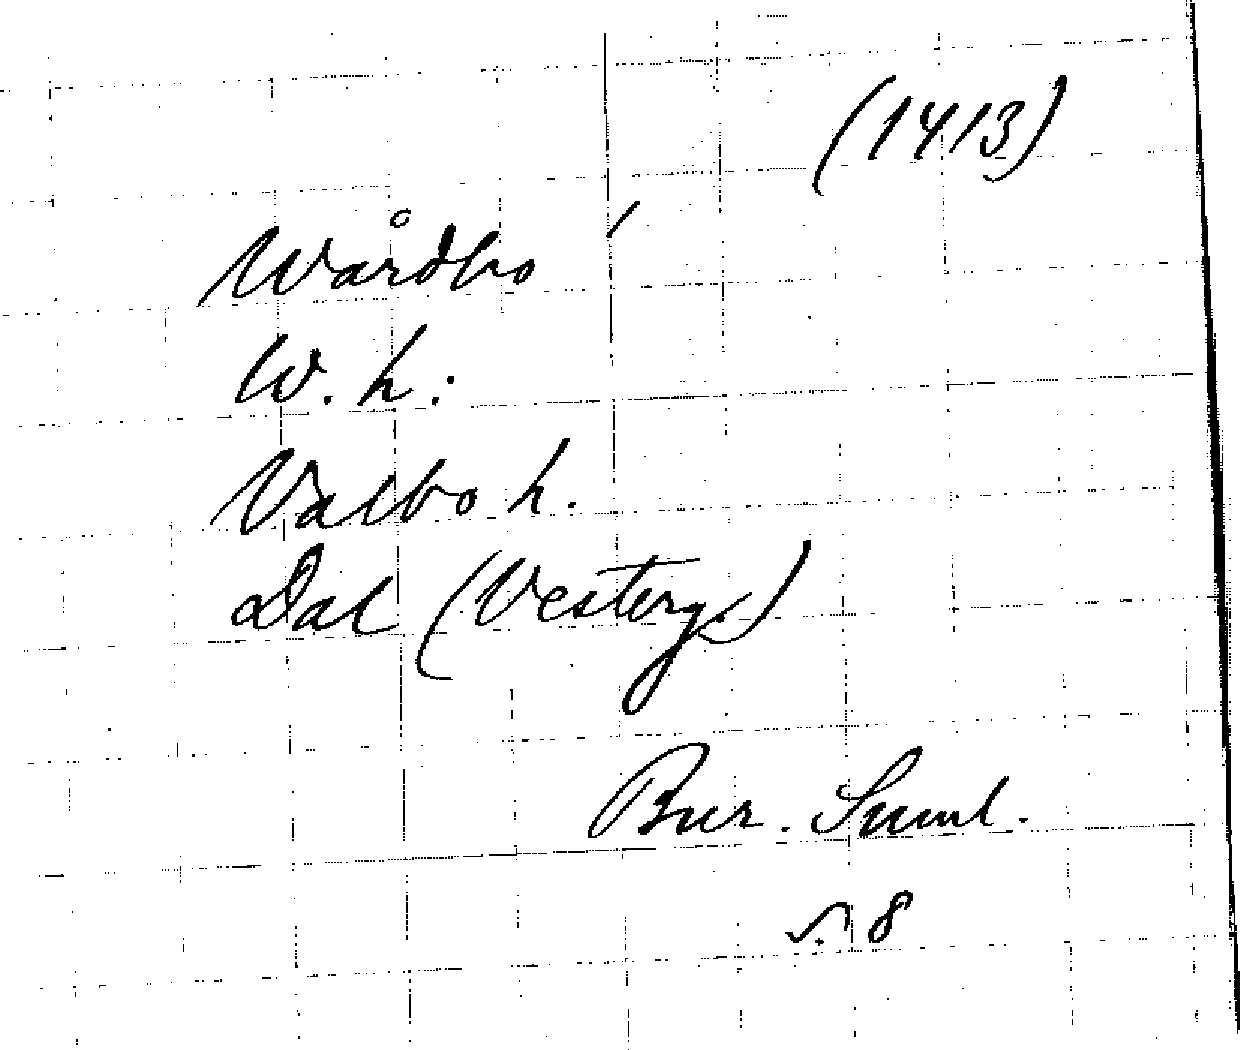 (1413)
Wårdbo
W. h.:
Valbo h.
Dal (Vesterg.)
Bur. Suml.
s. 8